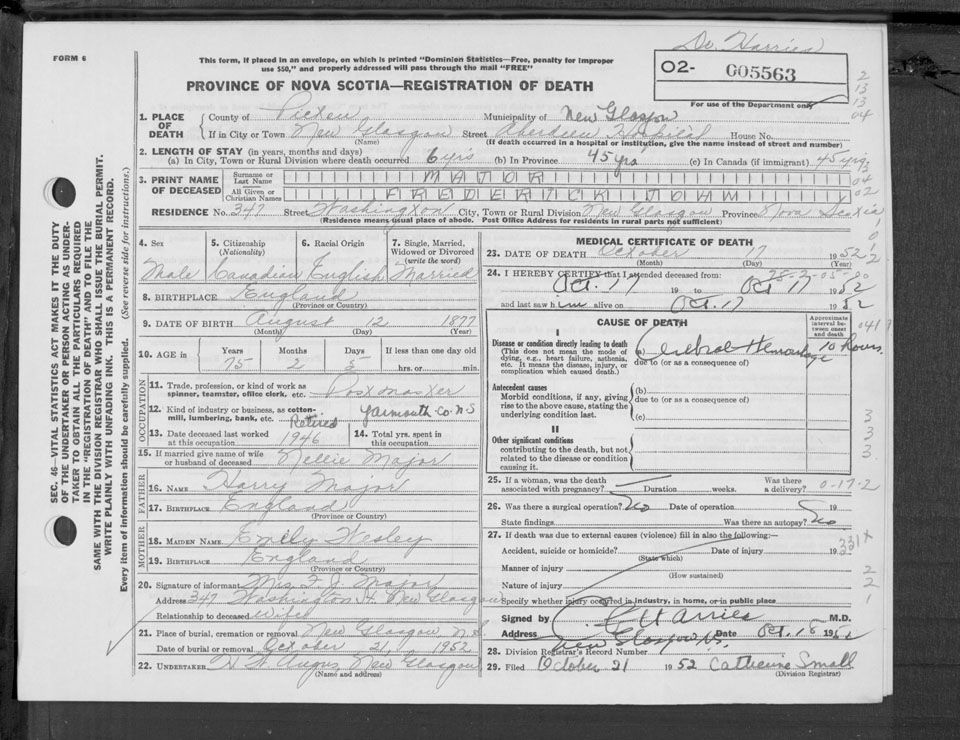 Dr. Harries
FORM 6
This form, if placed in an envelope, on which is printed "Dominion Statistics—Free, penalty for improper
use $50," and properly addressed will pass through the mail "FREE"
O2- 005563
PROVINCE OF NOVA SCOTIA—REGISTRATION OF DEATH
For use of the Department only
1. PLACE OF DEATH
County of Pictou Municipality of New Glasgow
If in City or Town New Glasgow Street Aberdeen Hospital House No.
(Name) (If death occurred in a hospital or institution, give the name instead of street and number)
2. LENGTH OF STAY (in years, months and days)
(a) In City, Town or Rural Division where death occurred 6 yrs (b) In Province 45 yrs (c) In Canada (if immigrant) 45 yrs
3. PRINT NAME OF DECEASED
Surname or Last Name MAJOR
All Given or Christian Names FREDERICK JOHN
RESIDENCE No. 347 Street Washington City, Town or Rural Division New Glasgow Province Nova Scotia
(Residence means usual place of abode. Post Office Address for residents in rural parts not sufficient)
4. Sex Male
5. Citizenship (Nationality) Canadian
6. Racial Origin English
7. Single, Married, Widowed or Divorced (write the word) Married
8. BIRTHPLACE England
(Province or Country)
9. DATE OF BIRTH August 12 1877
(Month) (Day) (Year)
10. AGE in Years 75 Months 2 Days 5 If less than one day old hrs. or min.
OCCUPATION
11. Trade, profession, or kind of work as spinner, teamster, office clerk, etc. Postmaster
12. Kind of industry or business, as cotton-mill, lumbering, bank, etc. Retired Yarmouth Co. N S
13. Date deceased last worked at this occupation 1946
14. Total yrs. spent in this occupation
15. If married give name of wife or husband of deceased Nellie Major
FATHER
16. NAME Harry Major
17. BIRTHPLACE England
(Province or Country)
MOTHER
18. MAIDEN NAME Emily
19. BIRTHPLACE England
(Province or Country)
20. Signature of informant Mrs. F. J. Major
Address 347 Washington St. New Glasgow
Relationship to deceased Wife
21. Place of burial, cremation or removal New Glasgow, N.S.
Date of burial or removal October 21, 1952
22. UNDERTAKER New Glasgow
(Name and address)
MEDICAL CERTIFICATE OF DEATH
23. DATE OF DEATH October 17 1952
(Month) (Day) (Year)
24. I HEREBY CERTIFY that I attended deceased from:
Oct. 17 19 to Oct 17 1952
and last saw him alive on Oct. 17 1952
CAUSE OF DEATH
Approximate interval between onset and death
I
Disease or condition directly leading to death
(This does not mean the mode of dying, e.g., heart failure, asthenia, etc. It means the disease, injury, or complication which caused death.)
(a) Cerebral Hemorrhage 10 hours
due to (or as a consequence of)
Antecedent causes
Morbid conditions, if any, giving rise to the above cause, stating the underlying condition last.
(b)
due to (or as a consequence of)
(c)
II
Other significant conditions
contributing to the death, but not related to the disease or condition causing it.
25. If a woman, was the death associated with pregnancy? Duration weeks. Was there a delivery?
26. Was there a surgical operation? No Date of operation 19
State findings Was there an autopsy? No
27. If death was due to external causes (violence) fill in also the following:—
Accident, suicide or homicide? Date of injury 19
(State which)
Manner of injury
(How sustained)
Nature of injury
Specify whether injury occurred in industry, in home, or in public place
Signed by Harries M.D.
Address New Glasgow N.S. Date Oct. 18 1952
28. Division Registrar's Record Number
29. Filed October 21 1952 Catherine Small
(Division Registrar)
SEC. 46—VITAL STATISTICS ACT MAKES IT THE DUTY
OF THE UNDERTAKER OR PERSON ACTING AS UNDER-
TAKER TO OBTAIN ALL THE PARTICULARS REQUIRED
IN THE "REGISTRATION OF DEATH" AND TO FILE THE
SAME WITH THE DIVISION REGISTRAR WHO SHALL ISSUE THE BURIAL PERMIT.
WRITE PLAINLY WITH UNFADING INK. THIS IS A PERMANENT RECORD.
Every item of information should be carefully supplied. (See reverse side for instructions.)